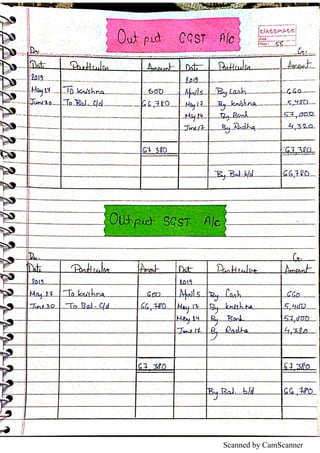 Output CGST A/c
classmate
55
Dr. Cr.
Date Particulars Amount Date Particulars Amount
2019 2019
May 27 To Krishna 600 April 5 By Cash 660
June 30 To Bal. C/d 66,780 May 17 By Krishna 5,400
May 24 By Bank 57,000
June 17 By Radha 4,320
67,380 67,380
By Bal. b/d 66,780
Output SGST A/c
Dr. Cr.
Date Particulars Amount Date Particulars Amount
2019 2019
May 27 To Krishna 600 April 5 By Cash 660
June 30 To Bal. C/d 66,780 May 17 By Krishna 5,400
May 24 By Bank 57,000
June 17 By Radha 4,320
67,380 67,380
By Bal. b/d 66,780
Scanned by CamScanner